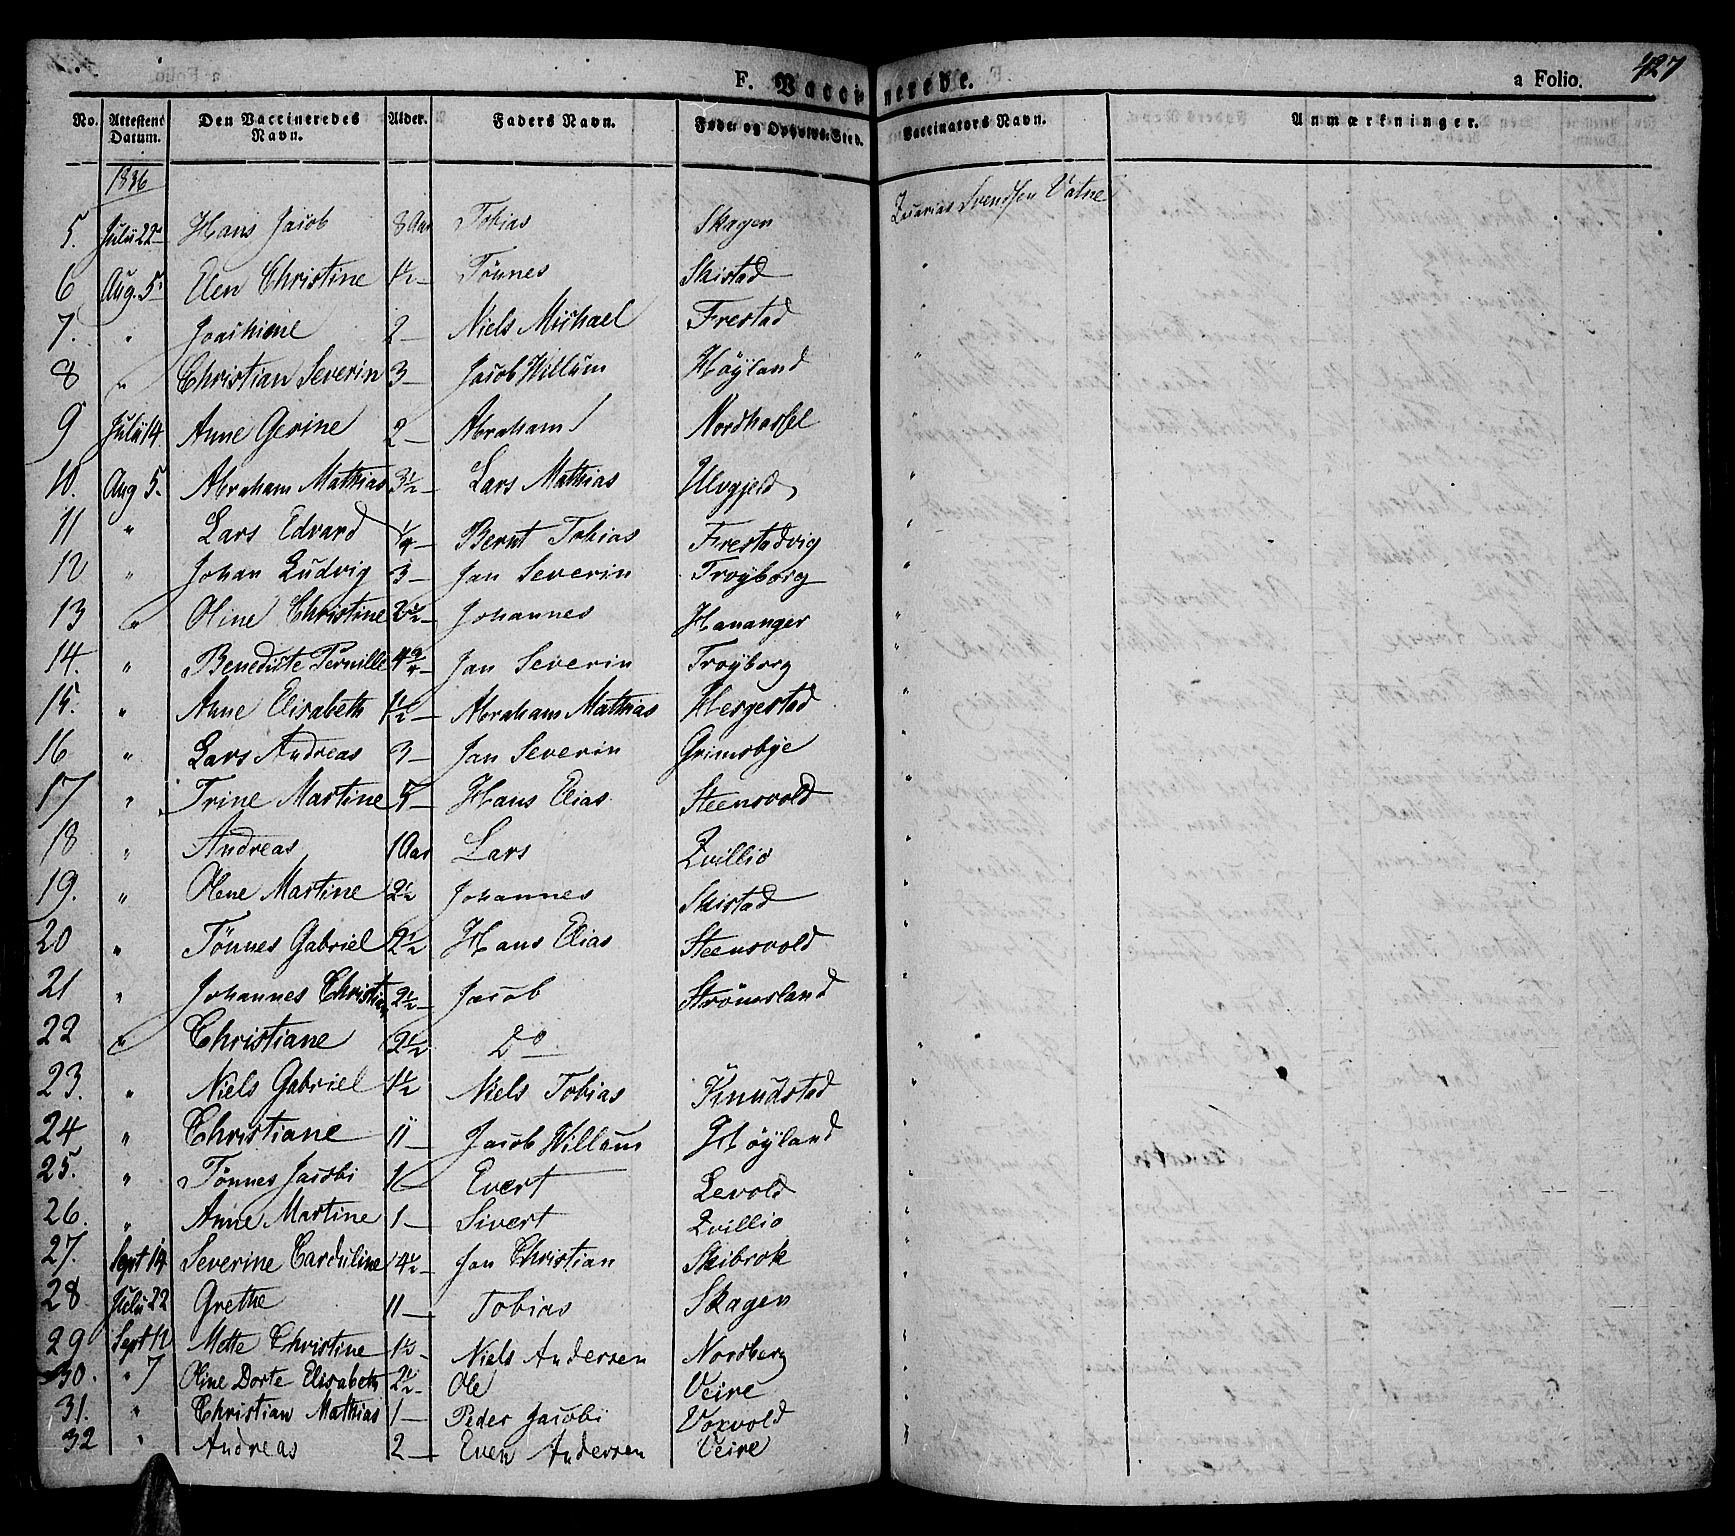 a Folio. 427
F. Vaccinerede.
No. Attestens Datum. Den Vaccineredes Navn. Alder. Faders Navn. Føde- og Opholds-Sted. Vaccinators Navn. Anmærkninger.
1836
5. Julii 22 Hans Jacob 8 Aar Tobias Skagen Svendsen Vatne
6 Aug. 5 Elen Christine 1½ Tönnes Skistad "
7. " Joachime 2 — Niels Michael Frestad "
8 " Christian Severin 3 — Jacob Willum Höyland "
9 Julii 14 Anne Gerine 2 — Abraham Nordhassel "
10. Aug 5. Abraham Mathias 3½ — Lars Mathias Ulvgjeld "
11 " Lars Edvard ¼ — Bernt Tobias Frestadvig "
12 " Johan Ludvig 3 — Jan Severin Troyborg "
13 " Oline Christine 2½ — Johannes Hananger "
14. " Benedicte Pernille 4 — Jan Severin Troyborg "
15. " Anne Elisabeth 1½ — Abraham Mathias Hergestad "
16 " Lars Andreas 3 — Jan Severin Grimsbye "
17 " Trine Martine 5 — Hans Elias Steensvold "
18 " Andreas 1 Aar Lars Qvillio "
19. " Olene Martine 2½ Johannes Skistad "
20 " Tönnes Gabriel 2½ Hans Elias Steensvold "
21 " Johannes Christian 2½ — Jacob Strömsland "
22 " Christiane 2½ Do "
23. " Niels Gabriel 1½ Niels Tobias Knudstad "
24 " Christiane 11 — Jacob Willum Höyland "
25. " Tönnes Jacobi Evert Levold "
26. " Anne Martine 1 — Sivert Qvillio "
27. Sept 14 Severine 4½ — Jan Christian Skibrok "
28 Julii 22 Grethe 11 — Tobias Skagen "
29 Sept 12 Mette Christine 1½ Niels Andersen Nordberg "
30. " 7 Oline Dorte Elisabeth 2½ — Ole Veire "
31. " Christian Mathias 1 — Peder Jacobi Voxvold "
32 " Andreas 2 — Even Andersen Veire "